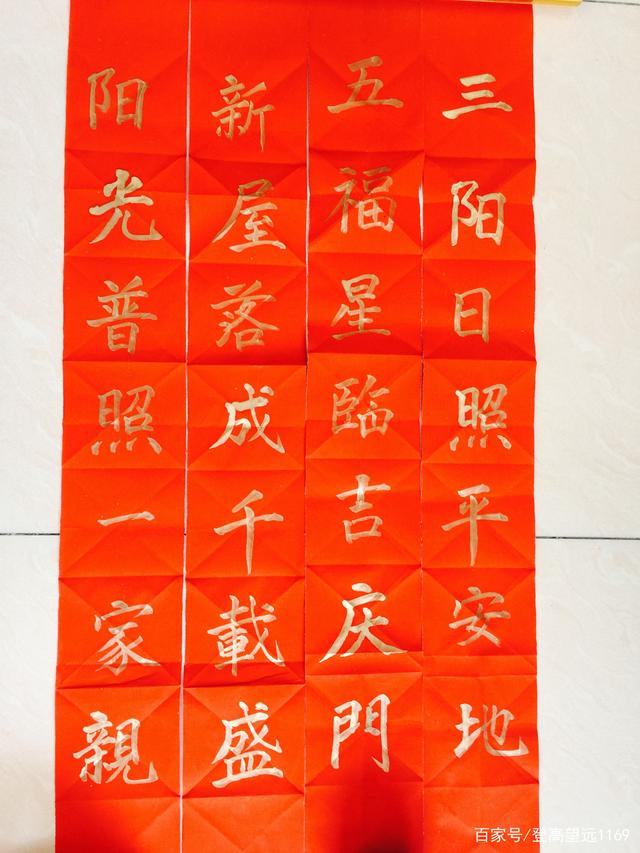 三阳日照平安地
五福星臨吉庆門
新屋落成千載盛
阳光普照一家親
百家号/登高望远1169